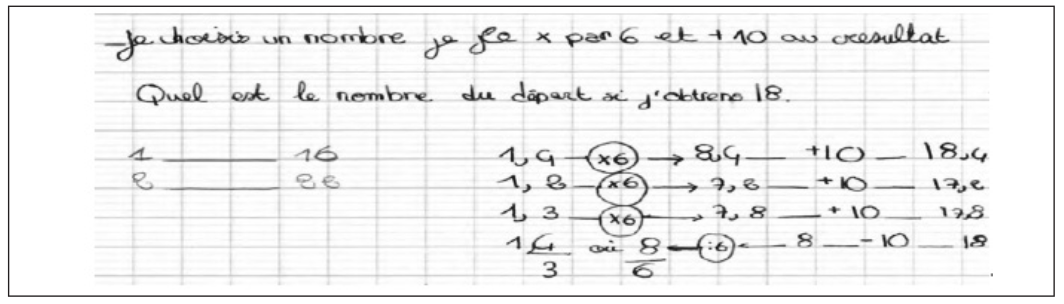 Je choisis un nombre je le x par 6 et +10 au resultat
Quel est le nombre du départ si j'obtiens 18.
1 ——— 16
2 ——— 22
1,4 —(x6)→ 8,4 — +10 — 18,4
1,2 —(x6)→ 7,2 — +10 — 17,2
1,3 —(x6)→ 7,8 — +10 — 17,8
1 4/3 où 8/6 ←(:6)← 8 — -10 — 18